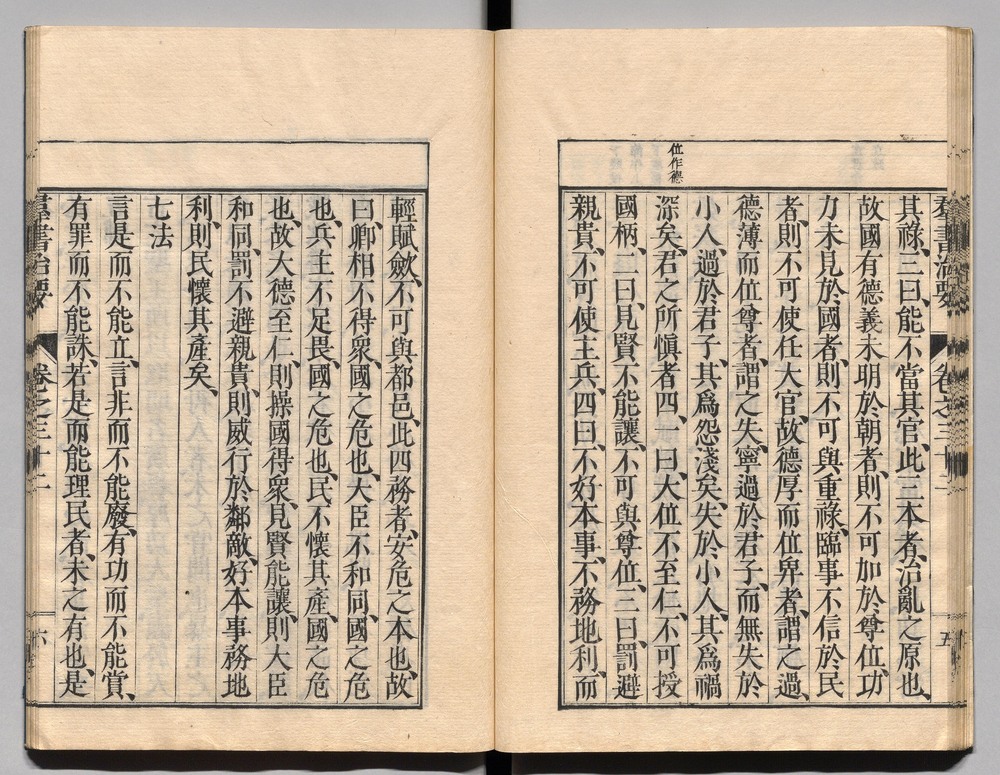 羣書治要 卷之三十二 五
位作德
其祿、三曰、能不當其官、此三本者、治亂之原也、
故國有德義未明於朝者、則不可加於尊位、功
力未見於國者、則不可與重祿、臨事不信於民
者、則不可使任大官、故德厚而位卑者、謂之過、
德薄而位尊者、謂之失、寧過於君子、而無失於
小人、過於君子、其爲怨淺矣、失於小人、其爲禍
深矣、君之所愼者四、一曰、大位不至仁、不可授
國柄、二曰、見賢不能讓、不可與尊位、三曰、罰避
親貴、不可使主兵、四曰、不好本事、不務地利、而
輕賦斂、不可與都邑、此四務者、安危之本也、故
曰、卿相不得衆、國之危也、大臣不和同、國之危
也、兵主不足畏、國之危也、民不懷其產、國之危
也、故大德至仁、則操國得衆、見賢能讓、則大臣
和同、罰不避親貴、則威行於鄰敵、好本事務地
利、則民懷其產矣、
七法
言是而不能立、言非而不能廢、有功而不能賞、
有罪而不能誅、若是而能理民者、未之有也、是
羣書治要 卷之三十二 六